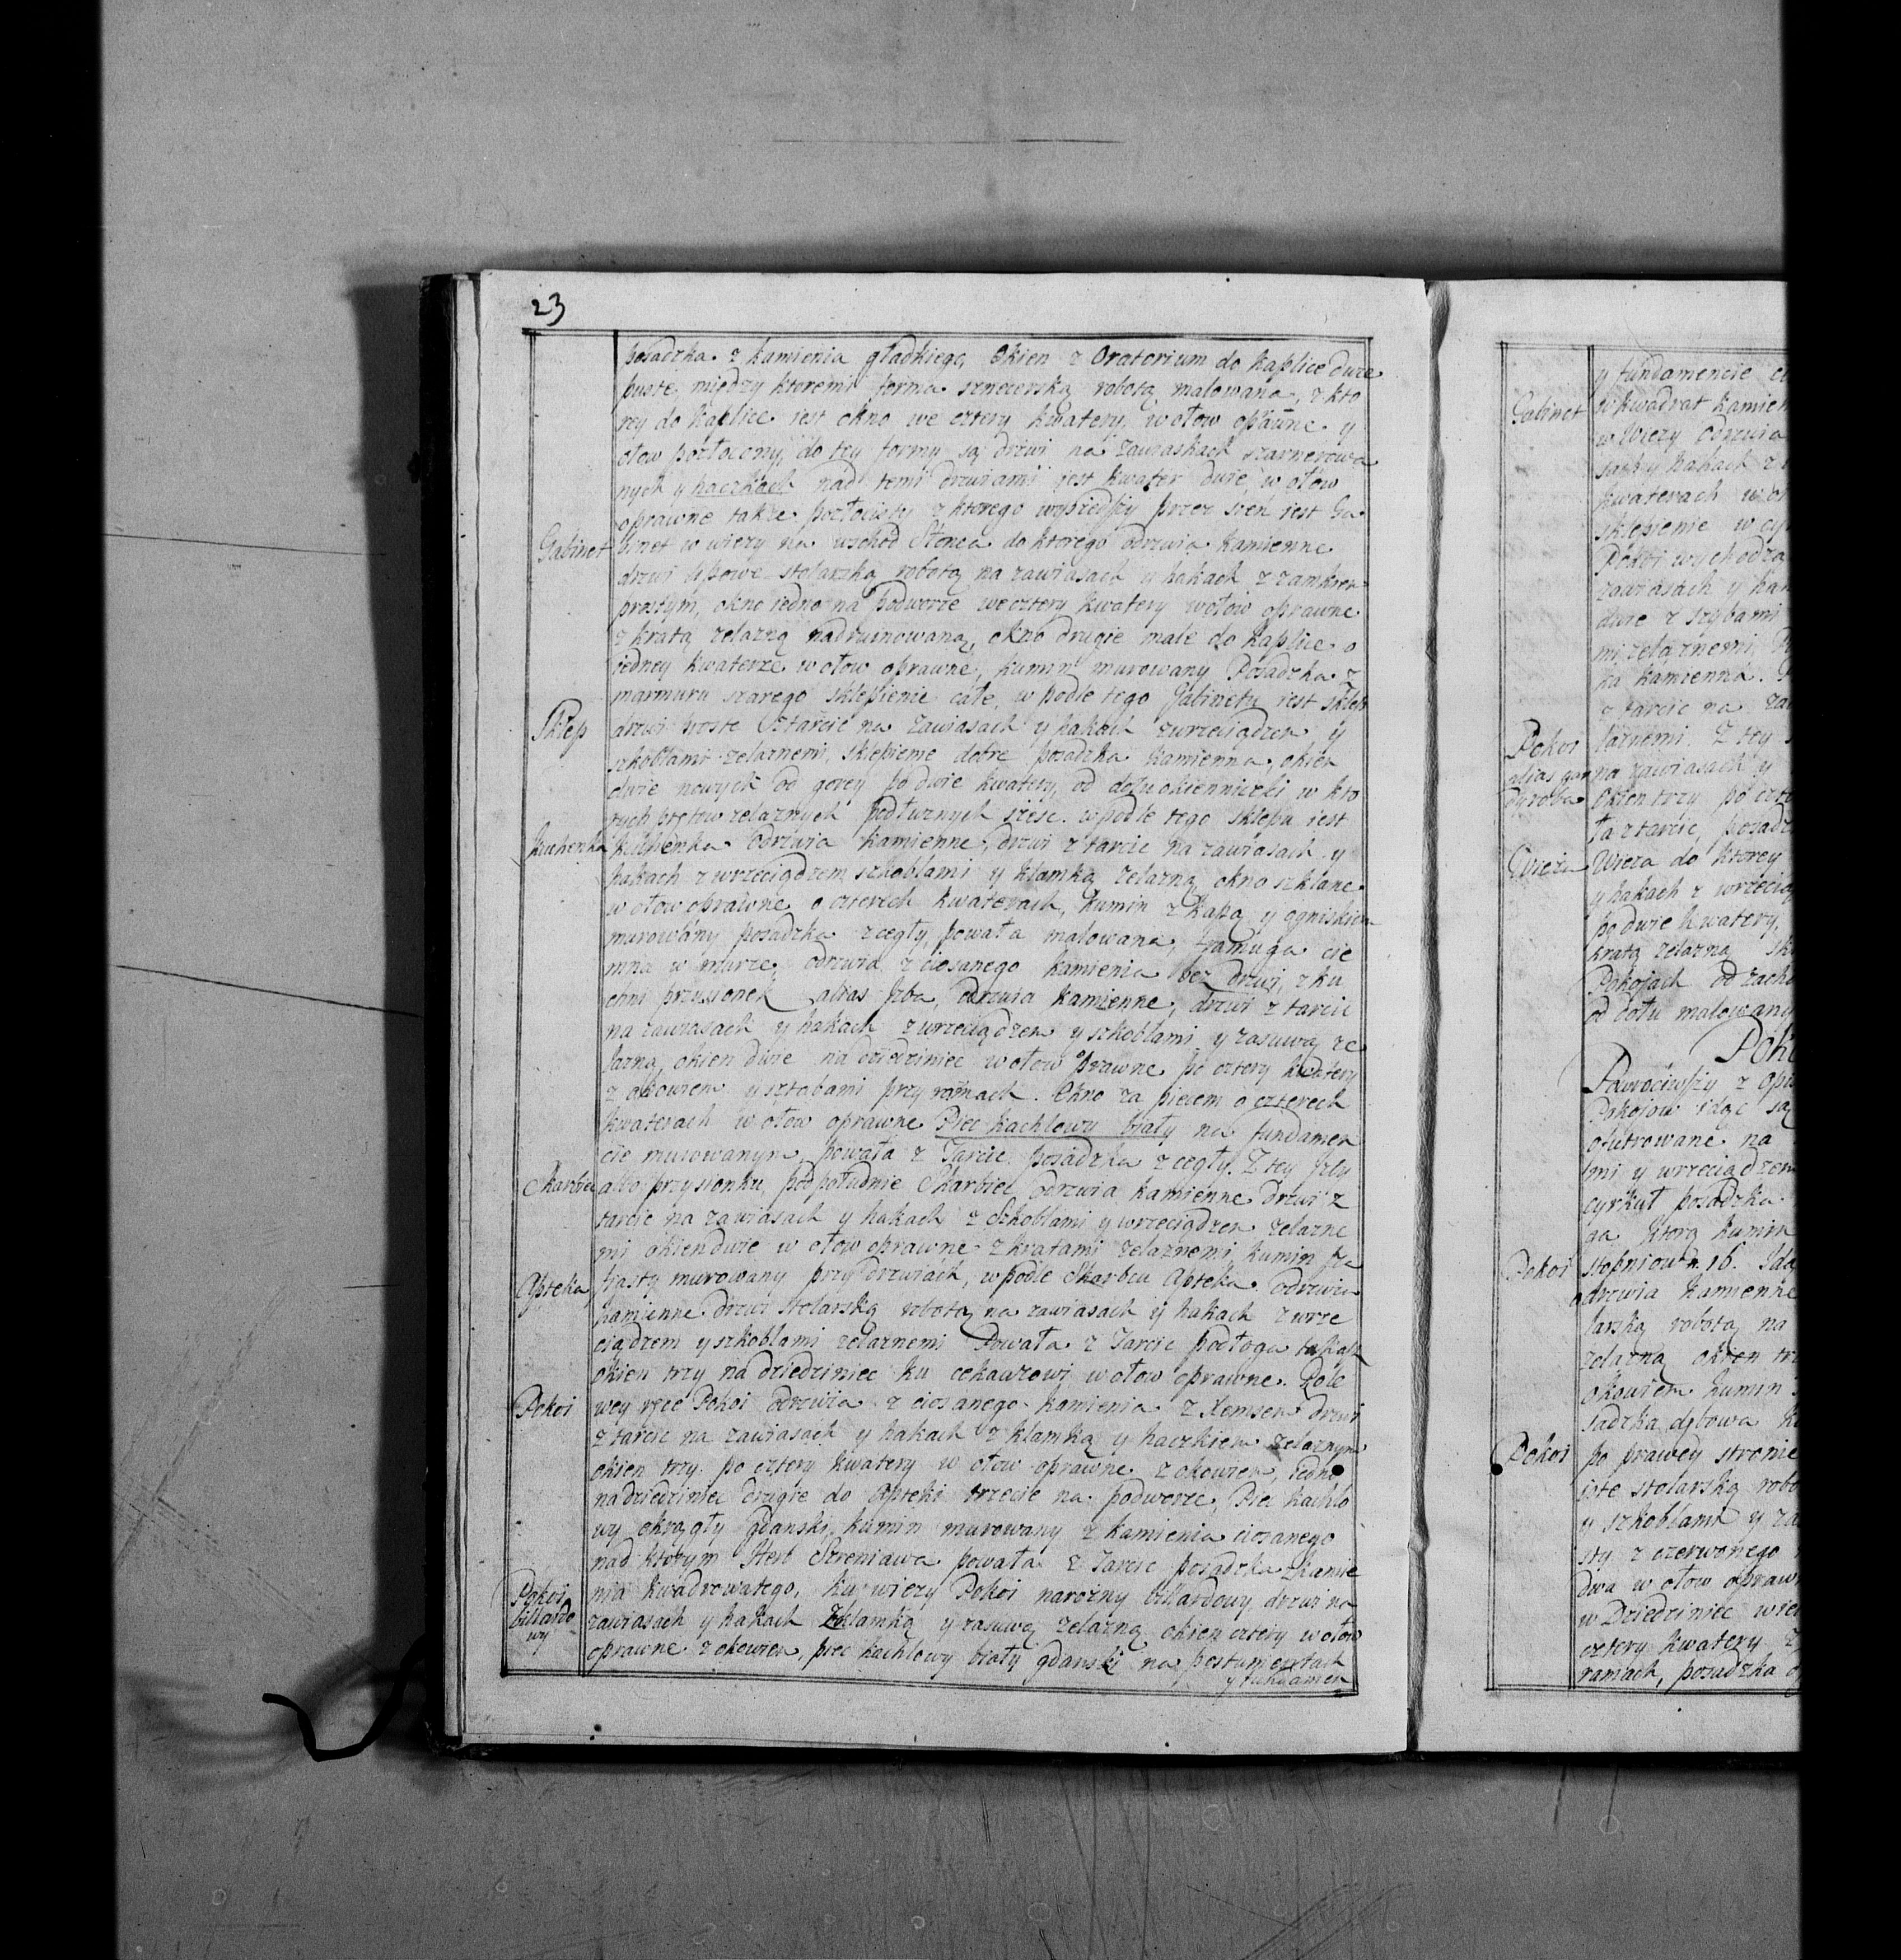 23
posadzka z kamienia gładkiego, Okien z Oratorium do kaplice dwie
puste, między ktoremi forma sznecerską robotą malowana, z kto
rey do kaplice iest okno we cztery kwatery, w ołow oprawne y
ołow pozłocony, do tey formy są drzwi na zawiaskach szarnerowa
nych y haczkach nad temi drzwiami jest kwater dwie, w ołów
oprawne także pozłocisty z ktorego wyszedszy przez sień iest Ga
Gabinet
binet w wieży na wschod Słonca do ktorego odrzwia kamienne
drzwi lipowe stolarską robotą na zawiasach y hakach z zamkiem
prostym, okno iedno na podworze we cztery kwatery w ołow oprawne
z kratą zelazną nadruinowaną, okno drugie małe do kaplice o
iedney kwaterze w ołow oprawne, kumin murowany Posadzka z
marmuru szarego sklepienie całe, w podle tego Gabinetu iest sklep
Sklep
drzwi proste z tarcic na zawiasach y hakach z wrzeciądzem y
szkoblami zelaznemi, sklepienie dobre posadzka kamienna, okien
dwie nowych od gorey po dwie kwatery, od dołu okienniczki w kto
rych prętow zelaznych podłuznych sześc. w podle tego sklepu iest
Kuchenka
kuchenka odrzwia kamienne, drzwi z tarcic na zawiasach y
hakach z wrzeciądzem szkoblami y klamką zelazną okno szklane
w ołow oprawne o czterech kwaterach, kumin z kapą y ogniskiem
murowany posadzka z cegły, powała malowana, framuga cie
mna w murze, odrzwia z ciosanego kamienia bez drzwi, z ku
chni przysionek alias Izba, odrzwia kamienne, drzwi z tarcic
na zawiasach y hakach z wrzeciądzem y szkoblami y zasuwą ze
lazną, okien dwie na dziedziniec w ołow oprawne po cztery kwatery
z okowiem y sztabami przy ramach. Okno za piecem o czterech
kwaterach w ołow oprawne Piec kachlowy biały na fundamen
cie murowanym, powała z Tarcic posadzka z cegły. Z tey Izby
Skarbiec
albo przysionku, pod południe Skarbiec odrzwia kamienne drzwi z
tarcic na zawiasach y hakach z Szkoblami y wrzeciądzem zelazne
mi okien dwie w ołow oprawne z kratami zelaznemi kumin
murowany przy drzwiach, w podle Skarbcu Apteka odrzwia
Apteka
kamienne drzwi stolarską robotą na zawiasach y hakach z wrze
ciądzem y szkoblami zelaznemi Powała z Tarcic podłoga takaz
okien trzy na dziedziniec ku cekauzowi w ołow oprawne. Po le
Pokoi
wey ręce Pokoi odrzwia z ciosanego kamienia z Xemsem drzwi
z tarcic na zawiasach y hakach z klamką y haczkiem zelaznym
okien trzy po cztery kwatery w ołow oprawne z okowiem, iedno
na dziedziniec drugie do Apteki trzecie na podworze, Piec kachlo
wy okrągły gdanski, kumin murowany z kamienia ciosanego
nad ktorym Herb Szreniawa powała z Tarcic posadzka z kamie
nia kwadrowatego, ku wieży Pokoi narożny billardowy drzwi na
Pokoi
billardo
wy
zawiasach y hakach z klamką y zasuwą zelazną okien cztery w ołow
oprawne z okowiem, piec kachlowy biały gdanski na pestumentach
y fundamen
y fundamencie
Gabinet
w kwadrat kamien
w Wiezy Odrzwia
sach y hakach z
kwaterach w oł
sklepienie w cy
Pokoi wychodzą
zawiasach y hak
dwie z szybami
mi zelaznemi
ka kamienna.
z tarcic na za
Pokoi
laznemi. Z tey
alias gar
na zawiasach y
dyroba
Okien trzy po czte
ła z tarcic, posadz
Wieża
Wieza do ktorey
y hakach z wrzecią
po dwie kwatery,
kratą zelazną skl
Pokojach od zach
od dołu malowany
Poko
Powrociwszy z
Pokojow idąc są
ofutrowane na
mi y wrzeciądzem
cyrkuł posadzka
ga ktorą kumin
Pokoi
stopniow n. 16. Idą
odrzwia kamienne
larską robotą na
zelazną okien trz
okowiem kumin
sadzka dębowa
Pokoi
po prawey stronie
iste stolarską robo
y szkoblami y za
sty z czerwonego
dwa w ołow opraw
w Dziedziniec wie
cztery kwatery z
ramach, posadzka